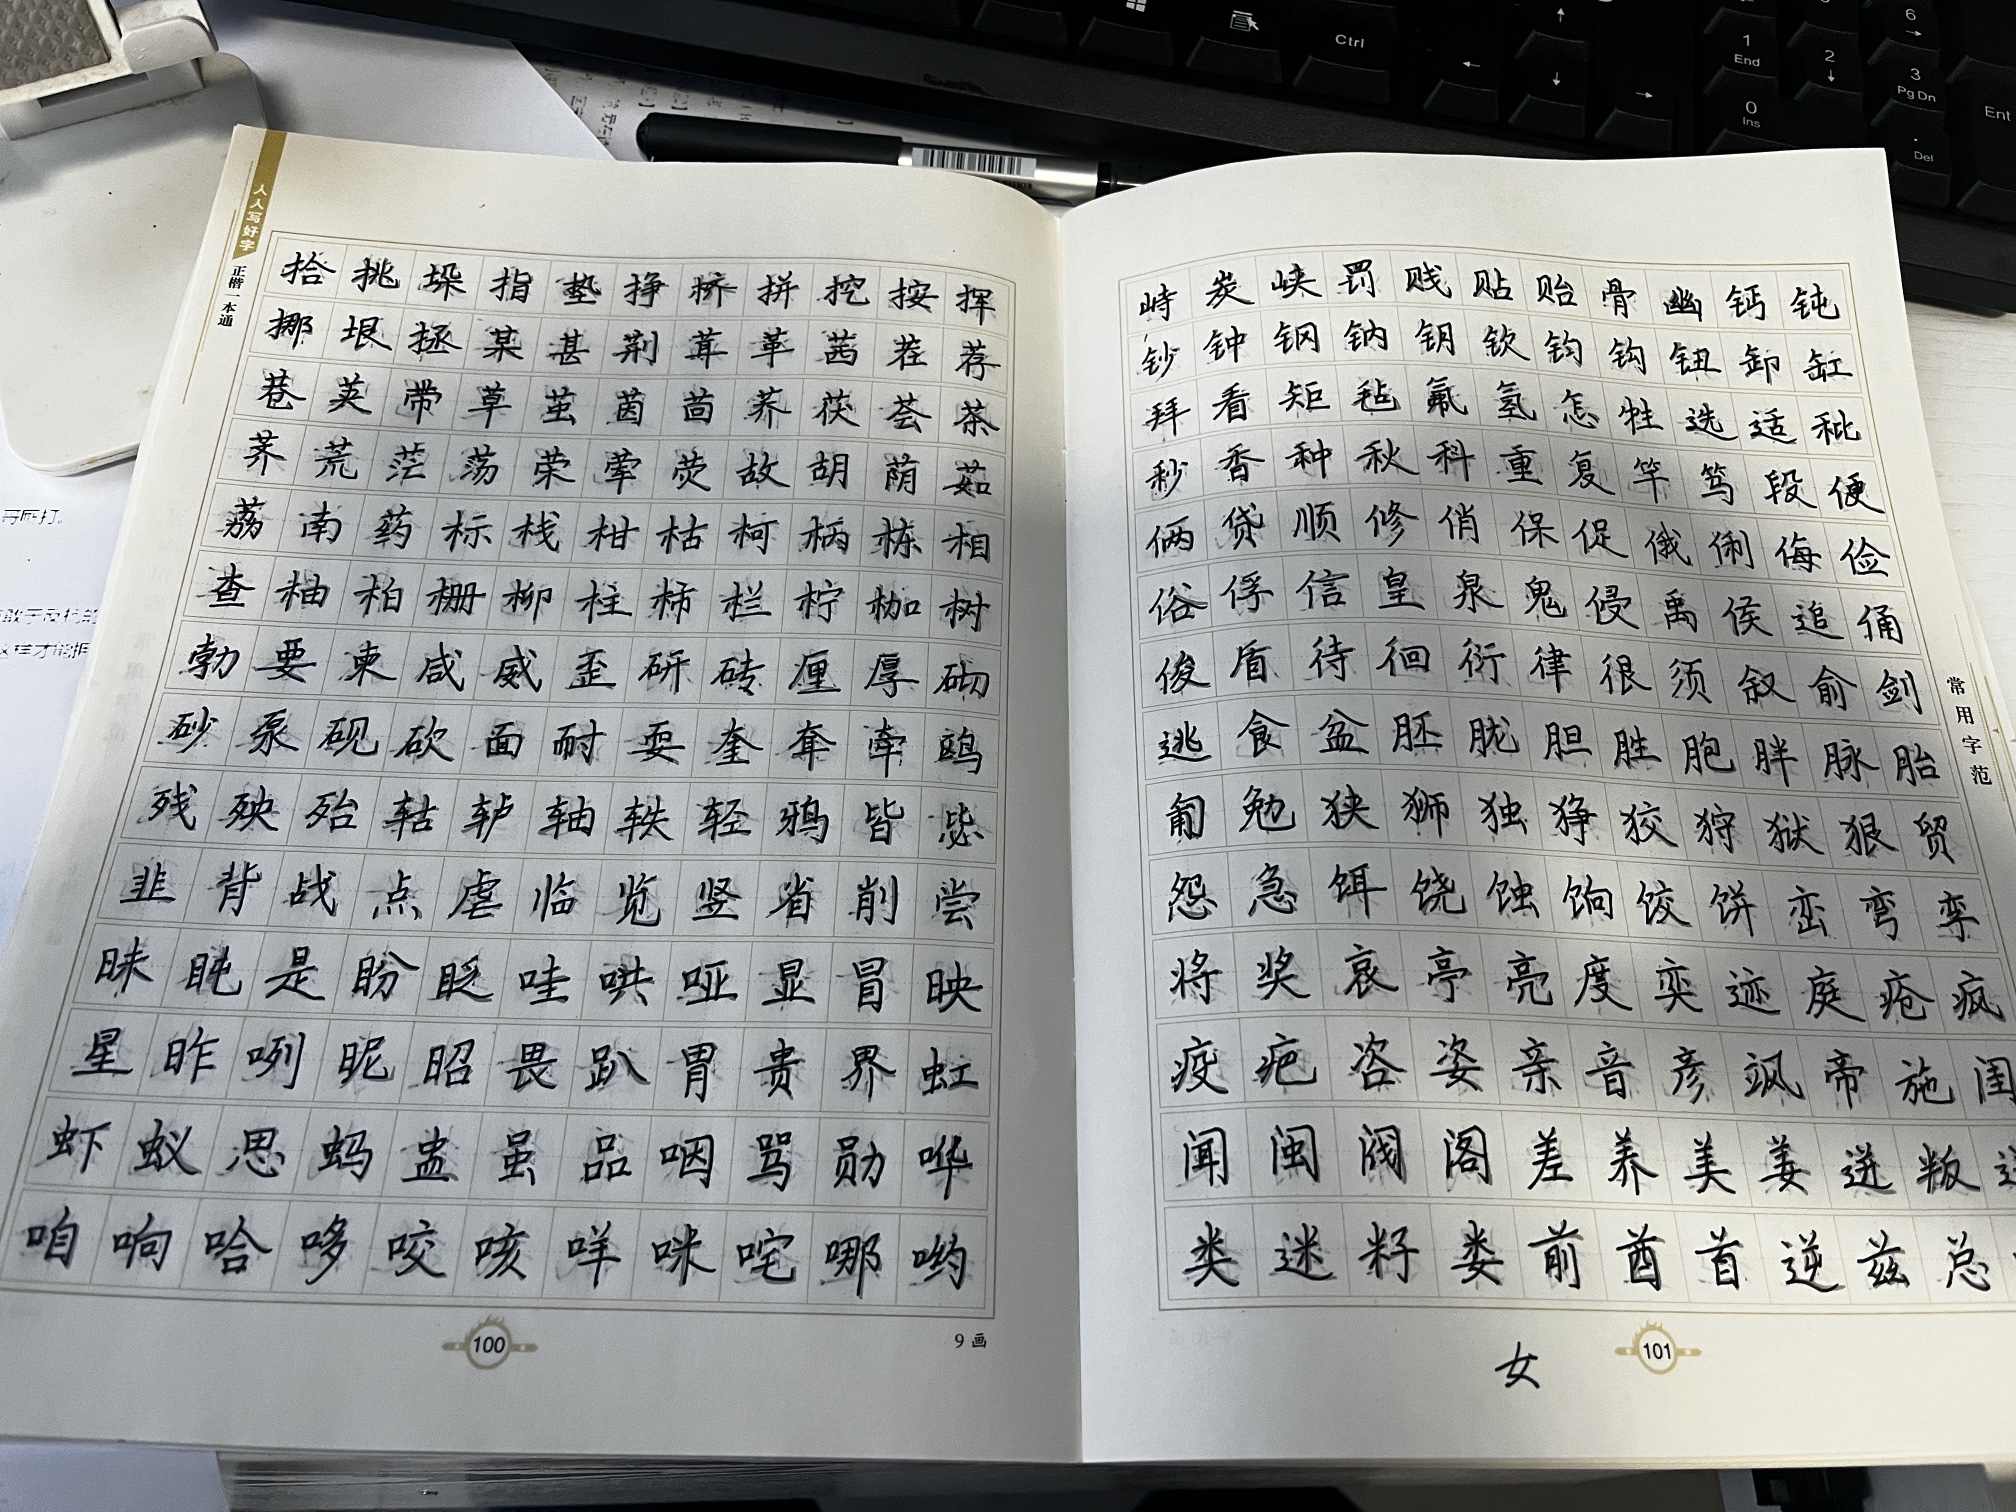 人人写好字
正楷一本通
拾挑垛指垫挣挤拼挖按挥
挪垠拯某甚荆茸革茜茬荐
巷荚带草茧茵茴荞茯荟茶
荠荒茫荡荣荤荧故胡荫茹
荔南药标栈柑枯柯柄栋相
查柚柏栅柳柱柿栏柠枷树
勃要柬咸威歪研砖厘厚砌
砂泵砚砍面耐耍奎耷牵鸥
残殃殆轱轳轴轶轻鸦皆毖
韭背战点虐临览竖省削尝
昧盹是盼眨哇哄哑显冒映
星昨咧昵昭畏趴胃贵界虹
虾蚁思蚂盅虽品咽骂勋哗
咱响哈哆咬咳咩咪咤哪哟
100
9画
峙炭峡罚贱贴贻骨幽钙钝
钞钟钢钠钥钦钧钩钮卸缸
拜看矩毡氟氢怎牲选适秕
秒香种秋科重复竿笃段便
俩贷顺修俏保促俄俐侮俭
俗俘信皇泉鬼侵禹侯追俑
俊盾待徊衍律很须叙俞剑
逃食盆胚胧胆胜胞胖脉胎
匍勉狭狮独狰狡狩狱狠贸
怨急饵饶蚀饷饺饼峦弯孪
将奖哀亭亮度奕迹庭疮疯
疫疤咨姿亲音彦飒帝施闺
闻闽阀阁差养美姜迸叛送
类迷籽娄前酋首逆兹总
101
女
常用字范
Ctrl
1 End
2
3 Pg Dn
6
0 Ins
. Del
Ent